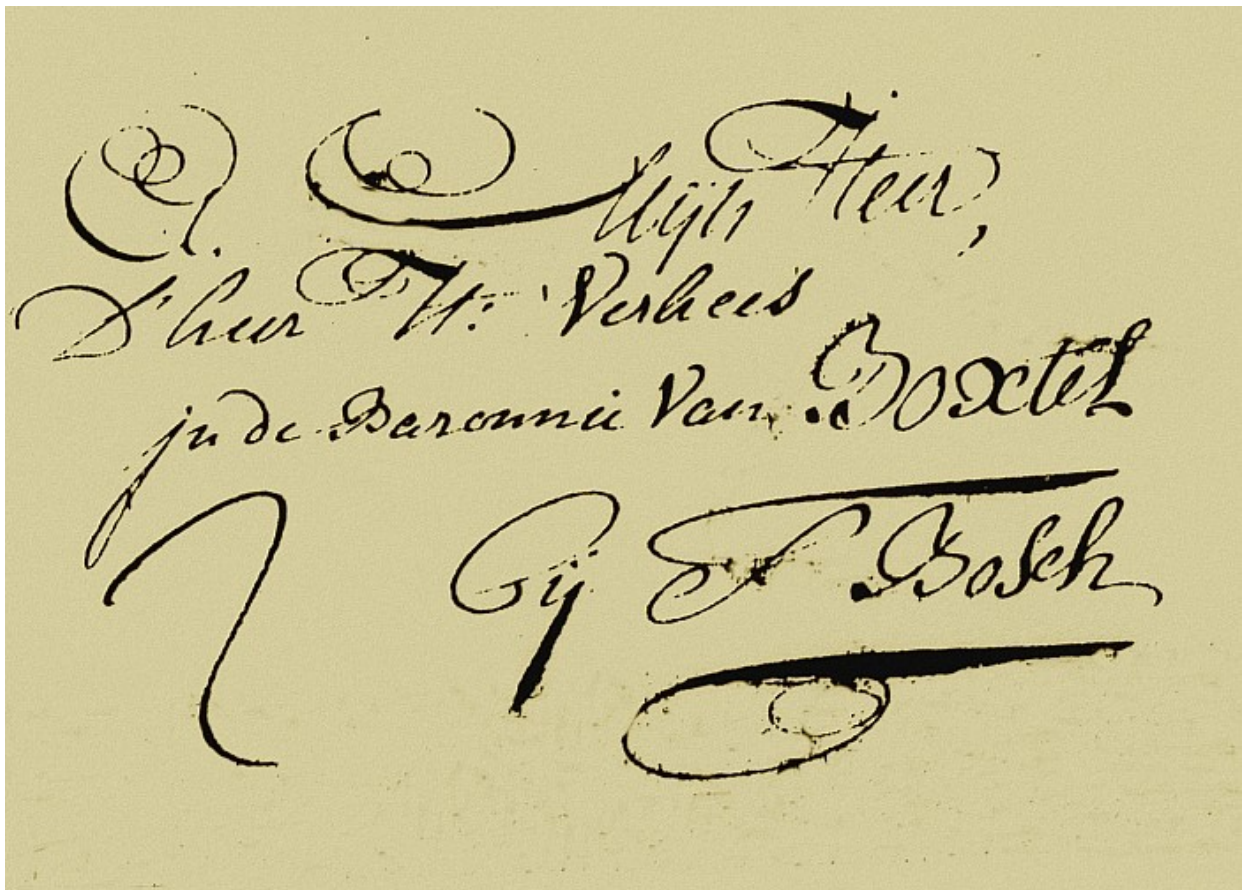 A. Mijn Heer,
D'heer H: Verhees
jn de Baronnie Van Boxtel
Bij S Bosch